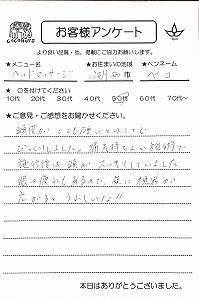 COCONUTS
お客様アンケート
より良い品質・他、掲載にご協力お願いします。
★メニュー名 ★お住まいの地域 ★ペンネーム
ヘッドマッサージ 湖西市 ペコ
★ ○を付けてください
10代 20代 30代 40代 50代 60代 70代~
★ご意見・ご感想をお聞かせください。
頭皮が とても硬いとのことで
びっくりしました。痛気持ちよい施術で
施術後は頭が スッキリしていました
眼の疲れもあるので、 視界が
広がる うれしいな!!
本日はありがとうございました。